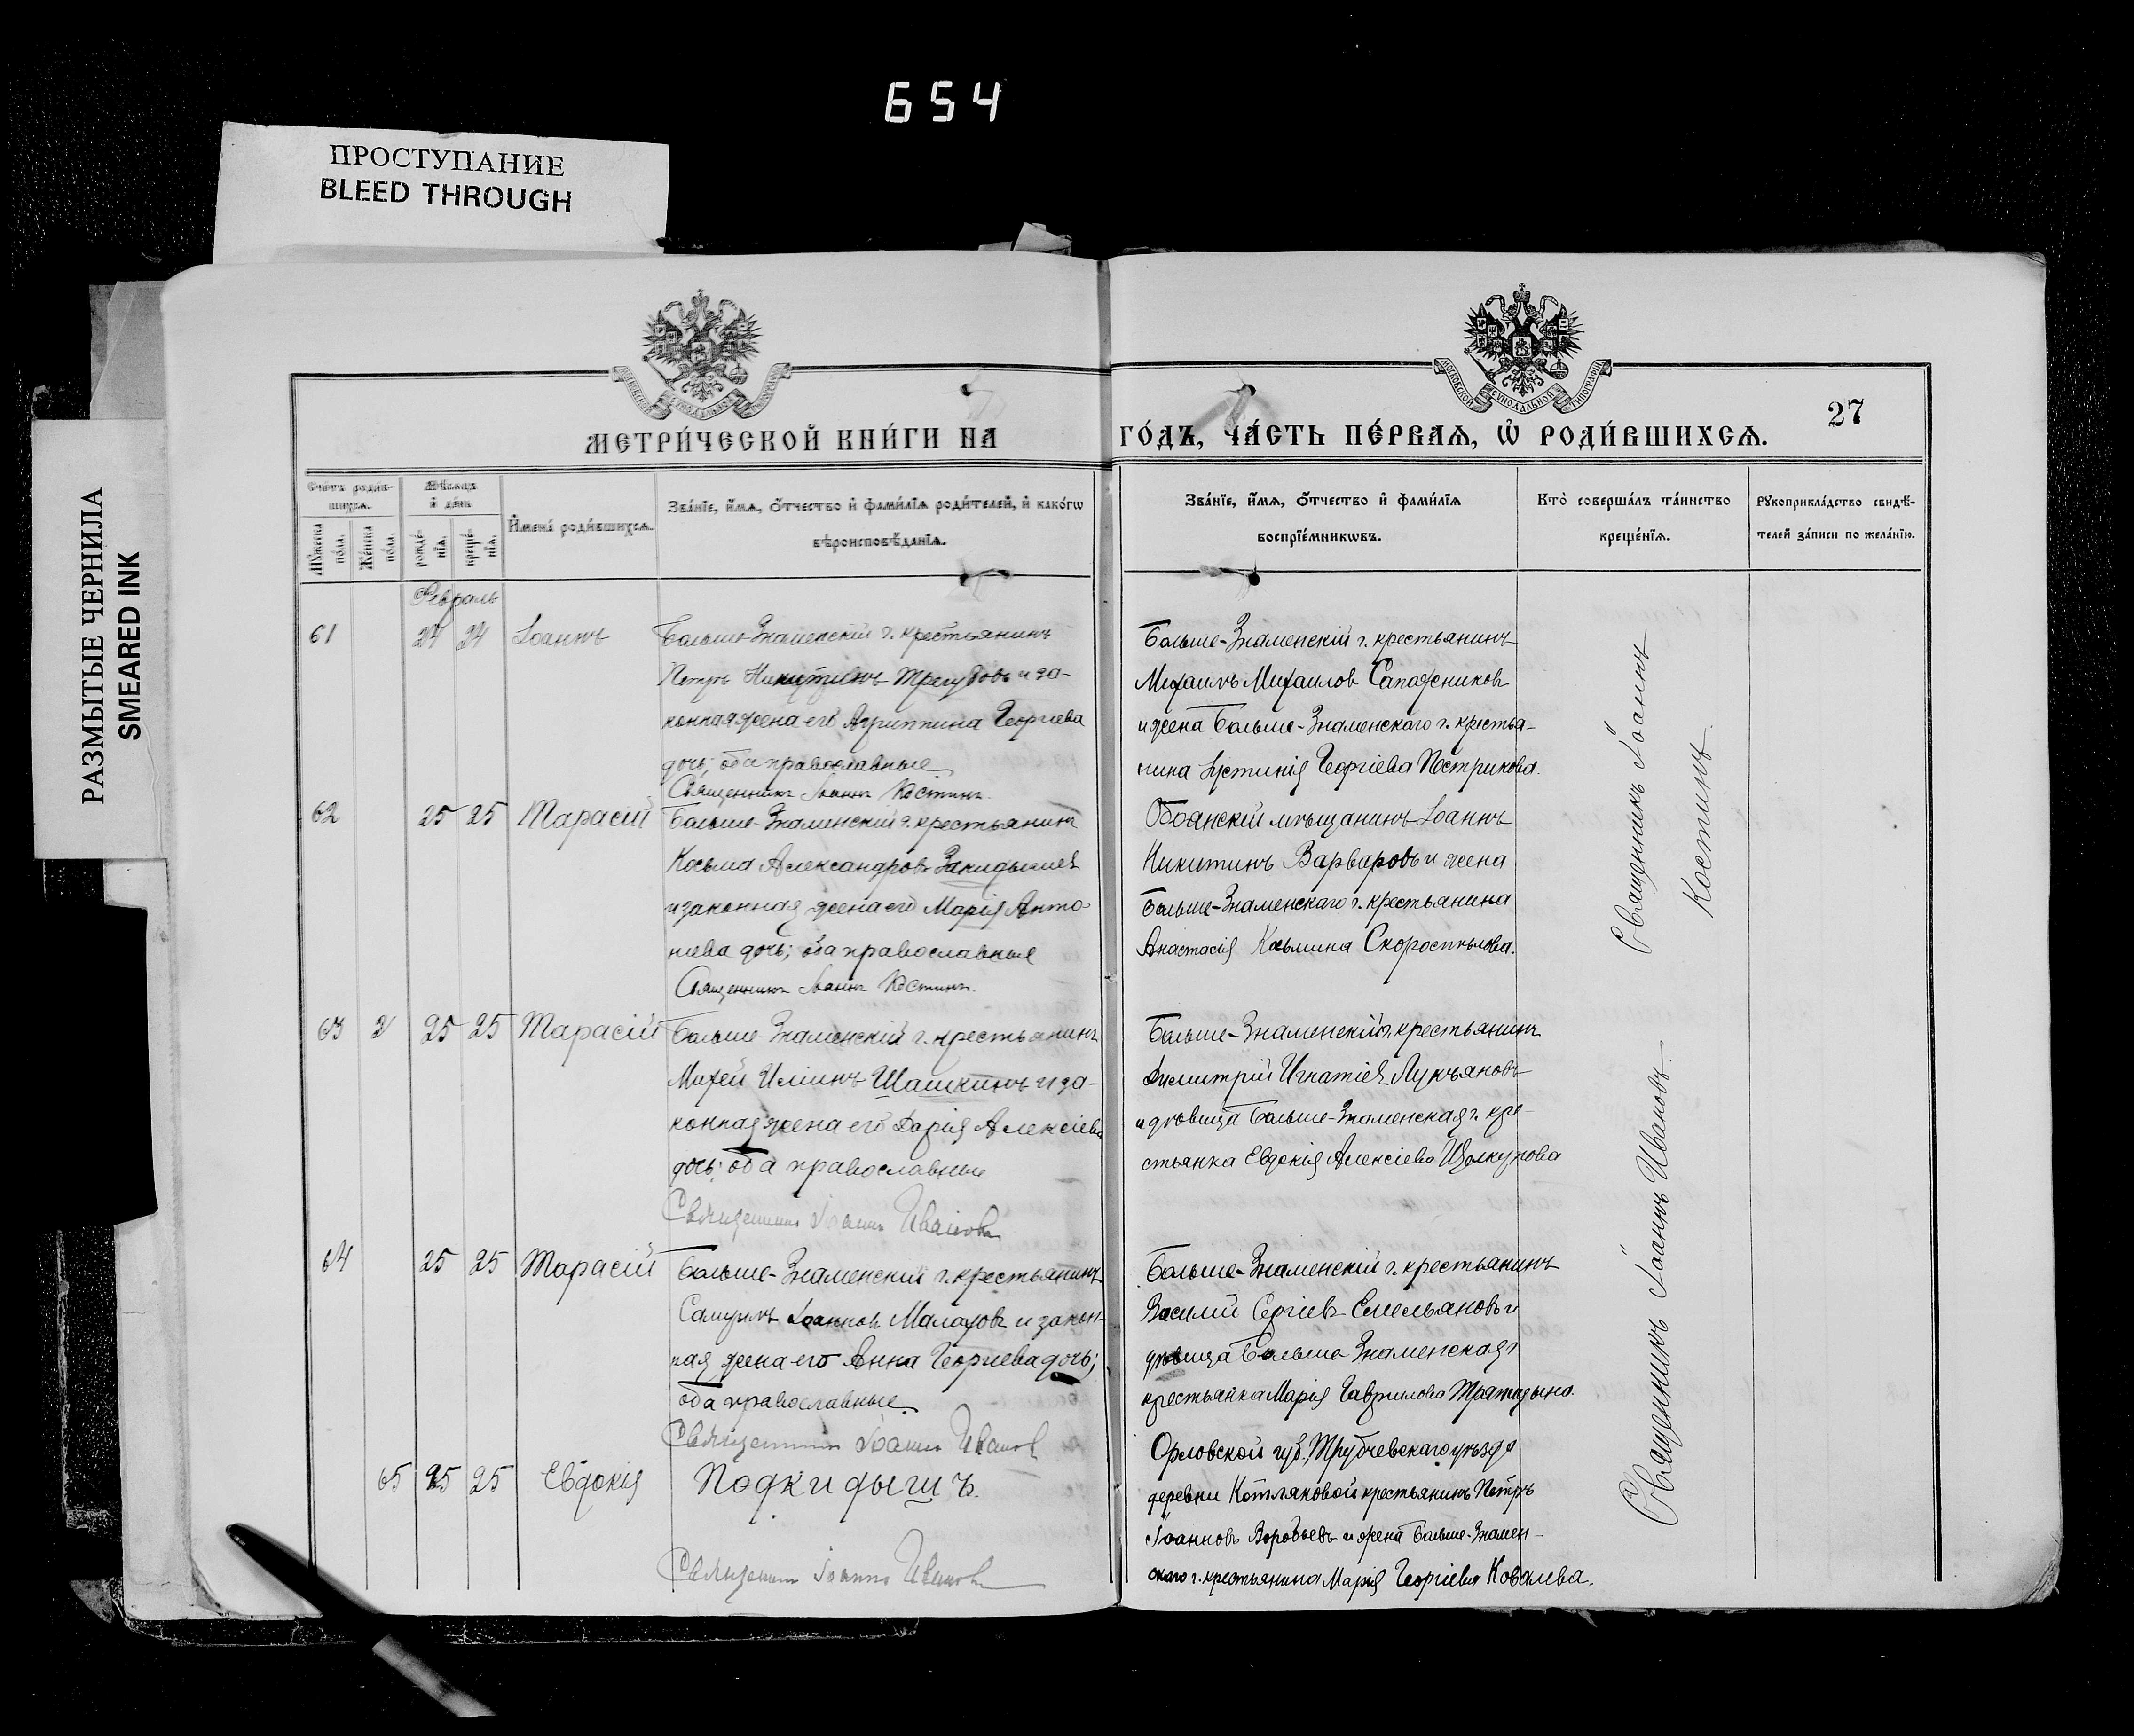 654
ПРОСТУПАНИЕ
BLEED THROUGH
РАЗМЫТЫЕ ЧЕРНИЛА
SMEARED INK
МОСКОВСКОЙ СѴНОДАЛЬНОЙ ТИПОГРАФІИ
27
МЕТРИ́ЧЕСКОЙ КНИ́ГИ НА ГО́ДЪ, ЧА́СТЬ ПЕ́РВАѦ, Ѡ҆ РОДИ́ВШИХСѦ.
Счетъ роди́вшихсѧ.
Мꙋжеска по́ла.
Же́нска по́ла.
Мѣ́сѧцъ и҆ де́нь
рожде́нїѧ.
креще́нїѧ.
И҆мена̀ роди́вшихсѧ.
Зва́нїе, и҆́мѧ, ѻ҆́тчество и҆ фами́лїѧ роди́телей, и҆ како́гѡ
вѣроисповѣ́данїѧ.
Зва́нїе, и҆́мѧ, ѻ҆́тчество и҆ фами́лїѧ
воспрїе́мникѡвъ.
Кто̀ соверша́лъ та́инство
креще́нїѧ.
Рꙋкоприкла́дство свидѣ́-
телей за́писи по жела́нїю.
Февраль
61 24 24 Іоаннъ
Больше-Знаменскій г. крестьянинъ
Петръ Никитинъ Трегубовъ и за-
конная жена его Агриппина Георгіева
дочь; оба православные
Священникъ Іоаннъ Костинъ.
Больше-Знаменскій г. крестьянинъ
Михаилъ Михаиловъ Сапожниковъ
и жена Больше-Знаменскаго г. крестья-
нина Іустинія Георгіева Петрикова.
Священникъ Іоаннъ
Костинъ.
62 25 25 Тарасій
Больше-Знаменскій г. крестьянинъ
Косьма Александровъ
и законная жена его Марія Анто-
ніева дочь; оба православные
Священникъ Іоаннъ Костинъ.
Обоянскій мѣщанинъ Іоаннъ
Никитинъ Варваровъ и жена
Больше-Знаменскаго г. крестьянина
Анастасія Косьмина Скороспѣлова.
63 2 25 25 Тарасій
Больше-Знаменскій г. крестьянинъ
Михей Иліинъ Шашкинъ и за-
конная жена его Дарія Алексіева
дочь; оба православные
Священникъ Іоаннъ Ивановъ
Больше-Знаменскій г. крестьянинъ
Димитрій Игнатіевъ Лукьяновъ
и дѣвица Больше-Знаменская г. кре-
стьянка Евдокія Алексіева Щолкунова
Священникъ Іоаннъ Ивановъ.
64 25 25 Тарасій
Больше-Знаменскій г. крестьянинъ
Самуилъ Іоанновъ Малаховъ и закон-
ная жена его Анна Георгіева дочь;
оба православные.
Священникъ Іоаннъ Ивановъ
Больше-Знаменскій г. крестьянинъ
Василій Сергіевъ Емельяновъ и
дѣвица Больше-Знаменская г.
крестьянка Марія Гаврилова
65 25 25 Евдокія
Подкидышъ.
Священникъ Іоаннъ Ивановъ
Орловской губ. Трубчевскаго уѣзда
деревни Котляковой крестьянинъ Петръ
Іоанновъ Воробьевъ и жена Больше-Знамен-
скаго г. крестьянина Марія Георгіева Ковалева.